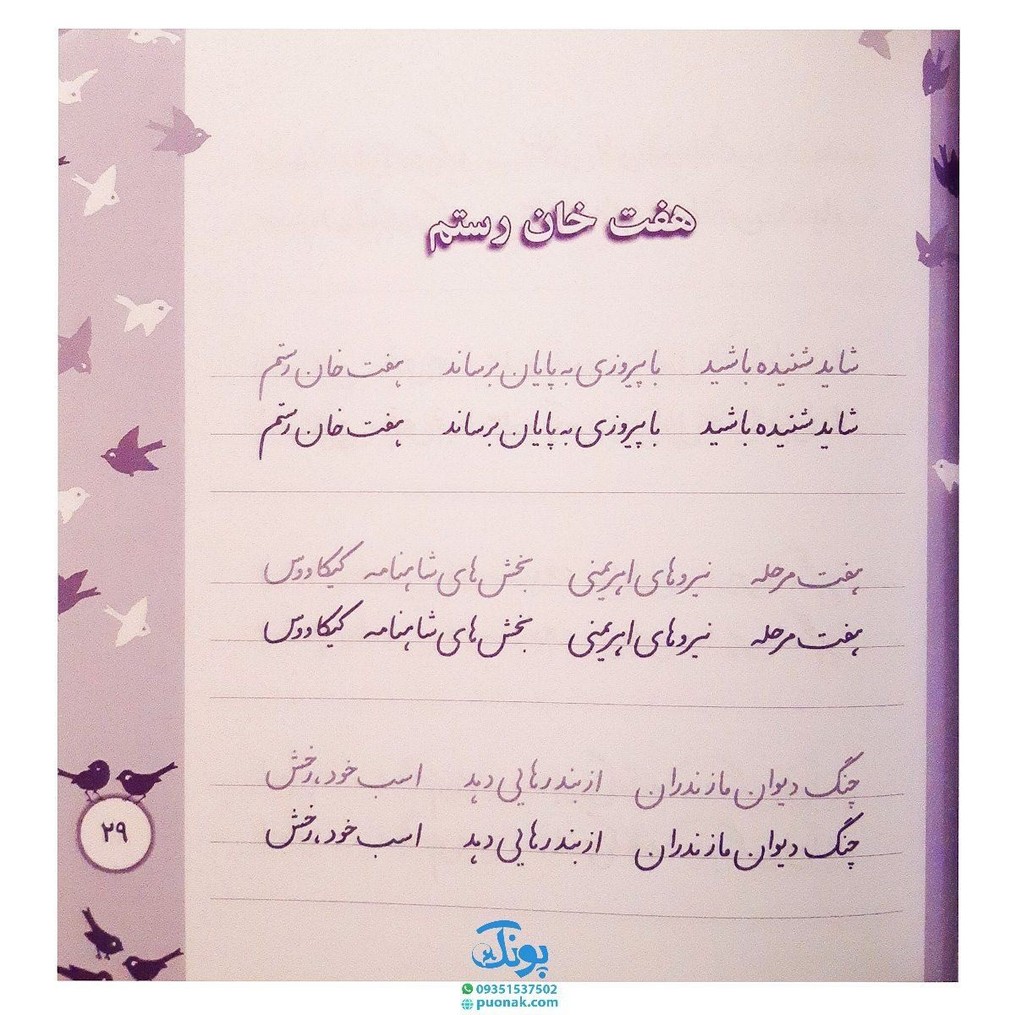 هفت خان رستم
شاید شنیده باشید با پیروزی به پایان برساند هفت خان رستم
شاید شنیده باشید با پیروزی به پایان برساند هفت خان رستم
هفت مرحله نیروهای اهریمنی بخش‌های شاهنامه کیکاووس
هفت مرحله نیروهای اهریمنی بخش‌های شاهنامه کیکاووس
چنگ دیوان مازندران از بند رهایی دهد اسب خود، رخش
چنگ دیوان مازندران از بند رهایی دهد اسب خود، رخش
۲۹
پونک
09351537502
puonak.com